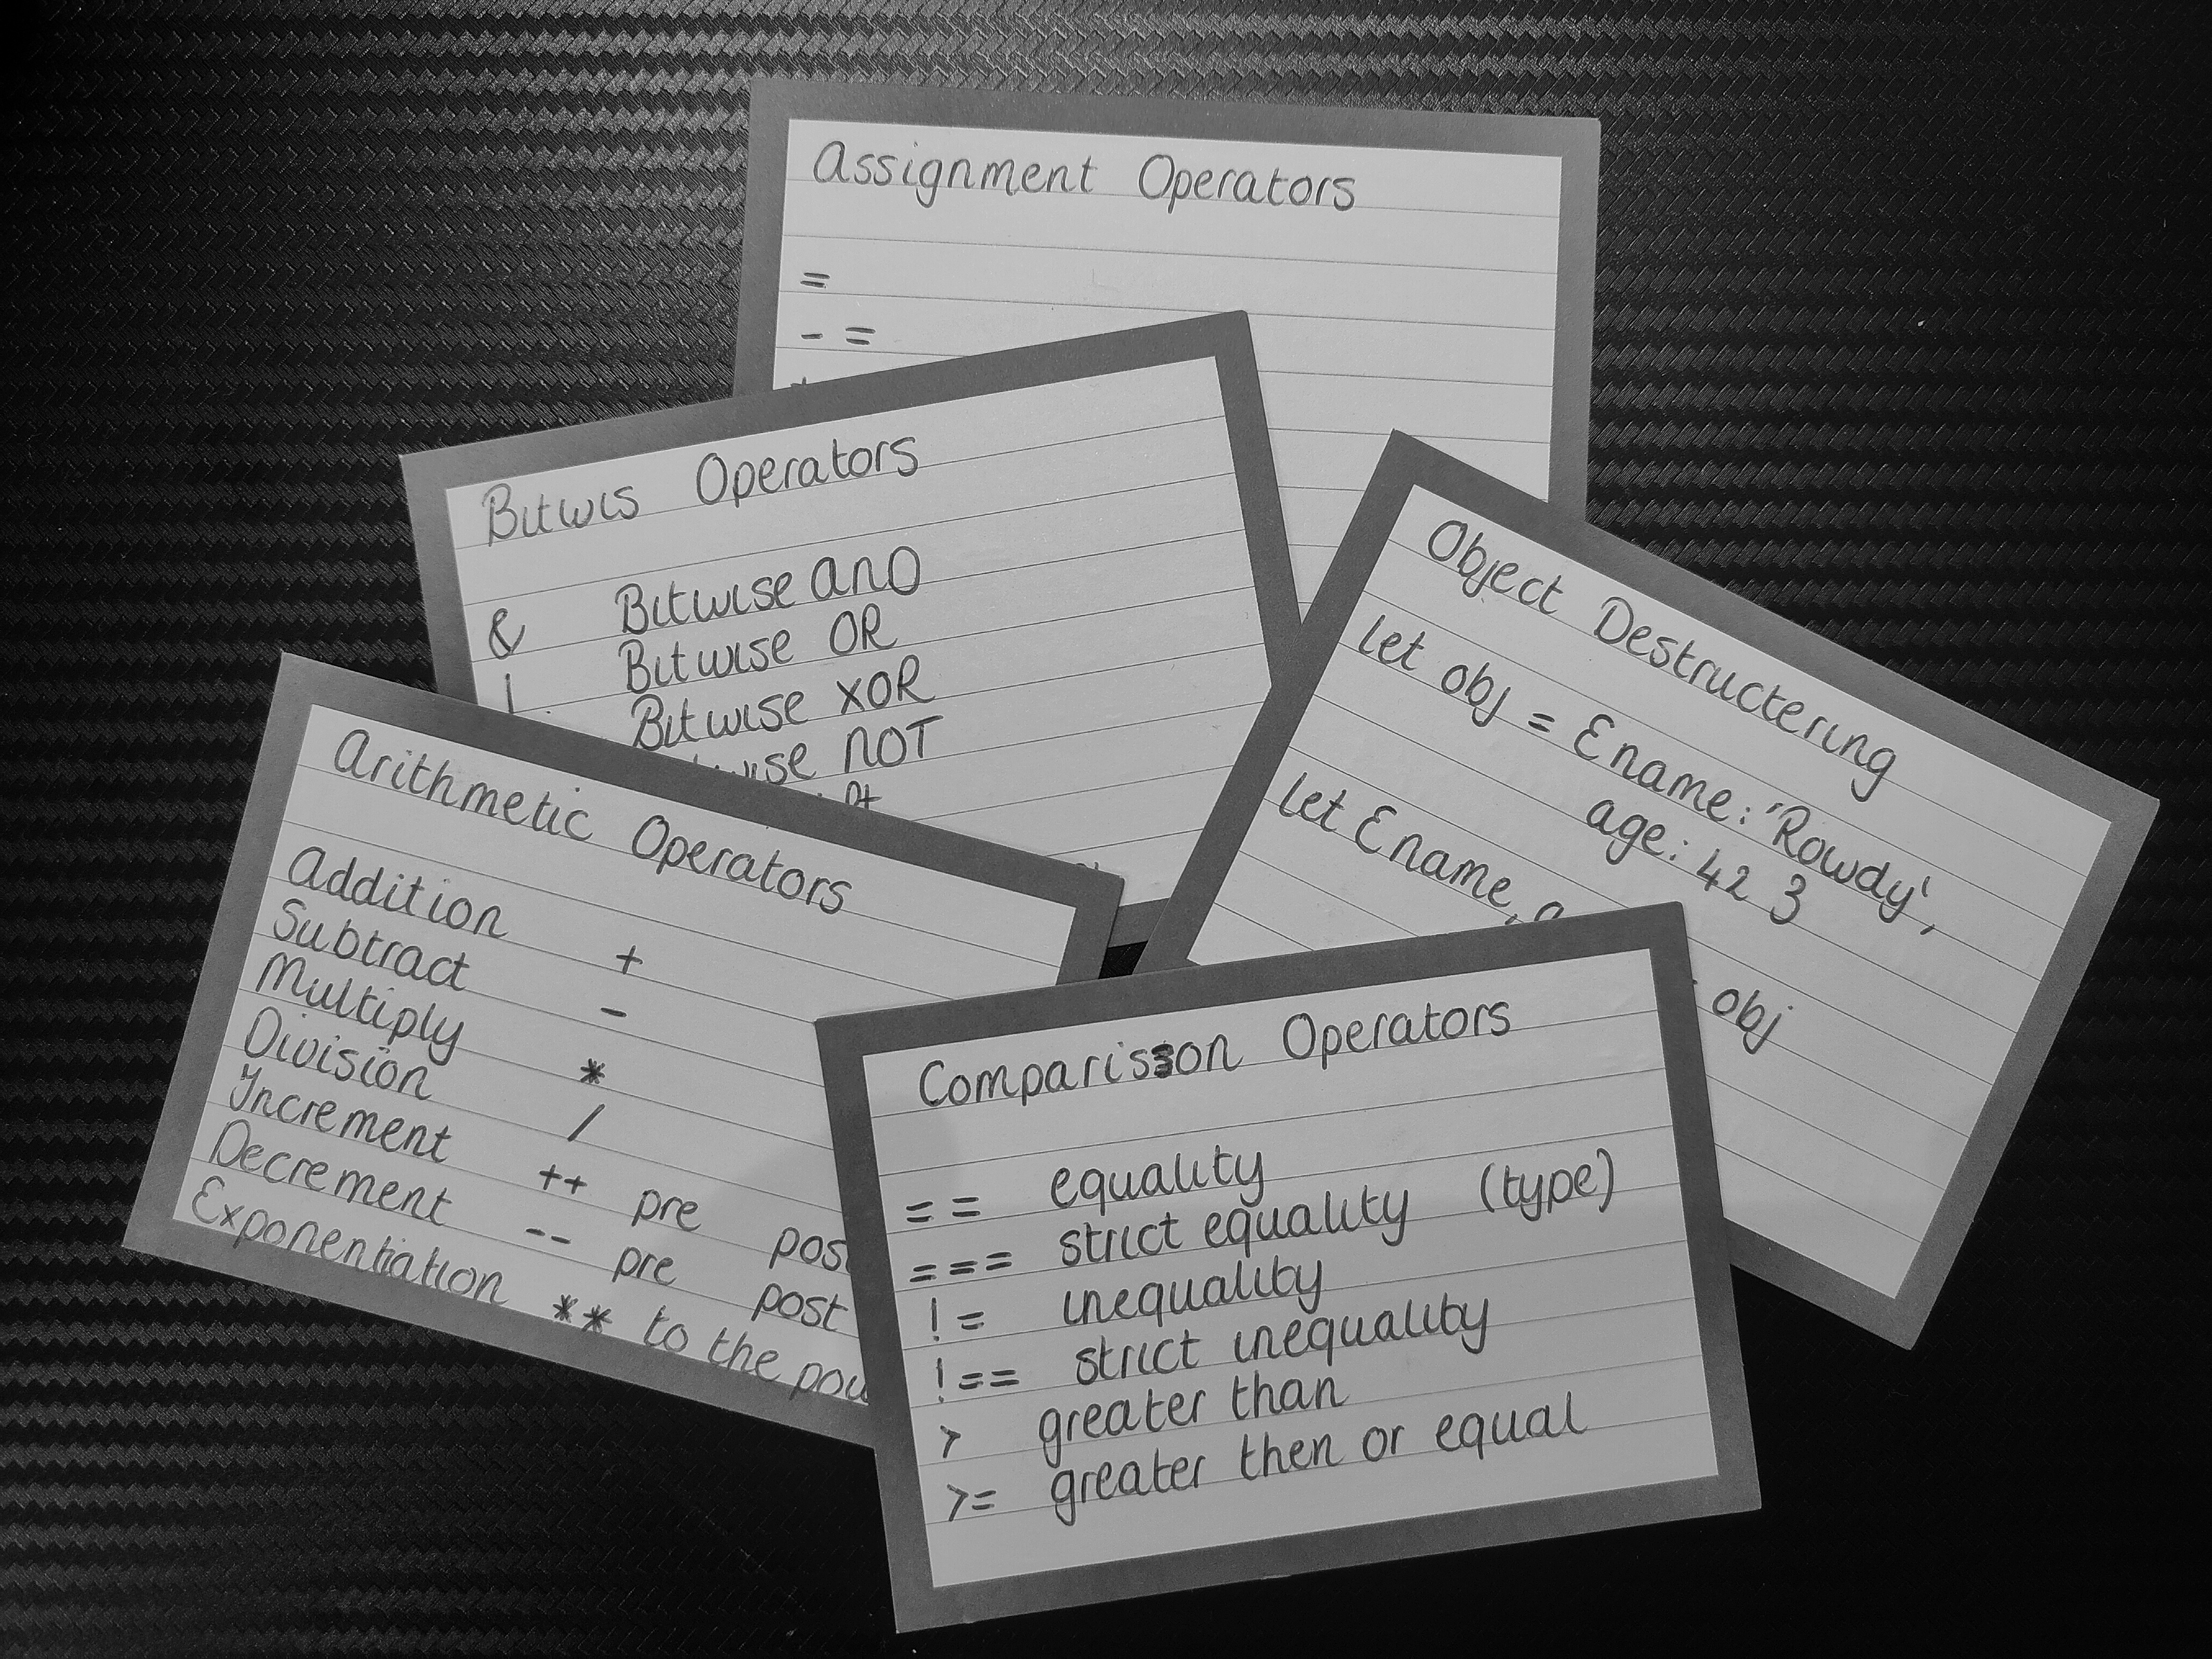 Assignment Operators
=
- =
Bitwis Operators
& Bitwise AND
| Bitwise OR
Bitwise XOR
NOT
Object Destructering
let obj = {name: 'Rowdy',
age: 42 }
let {name,
obj
Arithmetic Operators
Addition +
Subtract -
Multiply *
Division /
Increment ++ pre
Decrement -- pre post
Exponentiation ** to the
Comparison Operators
== equality
=== strict equality (type)
!= inequality
!== strict inequality
> greater than
>= greater then or equal